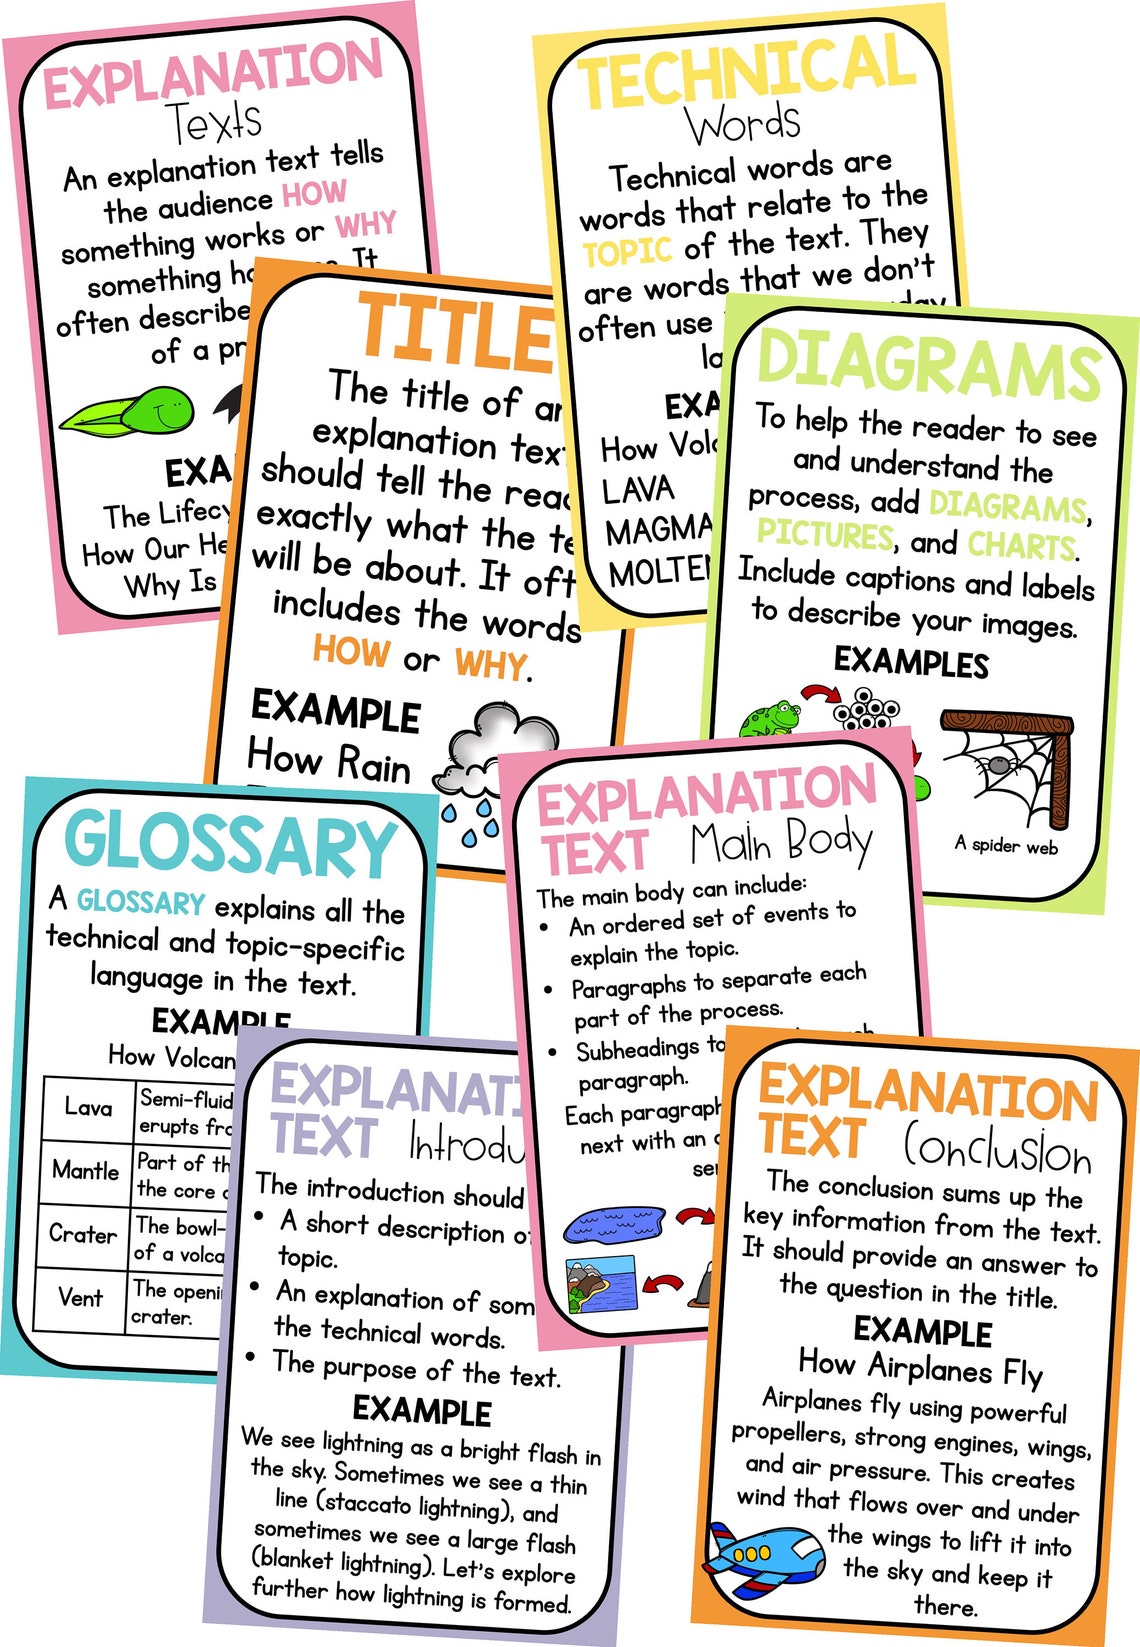 EXPLANATION
Texts
An explanation text tells
the audience HOW
something works or WHY
something
It
often
of a
The
How Our
Why Is
TECHNICAL
Words
Technical words are
words that relate to the
TOPIC of the text. They
are words that we don't
often use
How
LAVA
MAGMA
TITLE
The title of
explanation
should tell the
exactly what the
will be about. It
includes the words
HOW or WHY.
EXAMPLE
How Rain
DIAGRAMS
To help the reader to see
and understand the
process, add DIAGRAMS,
PICTURES, and CHARTS.
Include captions and labels
to describe your images.
EXAMPLES
A spider web
GLOSSARY
A GLOSSARY explains all the
technical and topic-specific
language in the text.
EXAMPLE
How
Lava
Semi-fluid
erupts
Mantle
Part of
the core
Crater
The
of a
Vent
The
crater.
EXPLANATION
TEXT Main Body
The main body can include:
• An ordered set of events to
explain the topic.
• Paragraphs to separate each
part of the process.
• Subheadings to
paragraph.
Each paragraph
next with an
TEXT
The introduction should
• A short description
topic.
• An explanation of
the technical words.
• The purpose of the text.
EXAMPLE
We see lightning as a bright flash in
the sky. Sometimes we see a thin
line (staccato lightning), and
sometimes we see a large flash
(blanket lightning). Let's explore
further how lightning is formed.
EXPLANATION
TEXT Conclusion
The conclusion sums up the
key information from the text.
It should provide an answer to
the question in the title.
EXAMPLE
How Airplanes Fly
Airplanes fly using powerful
propellers, strong engines, wings,
and air pressure. This creates
wind that flows over and under
the wings to lift it into
the sky and keep it
there.